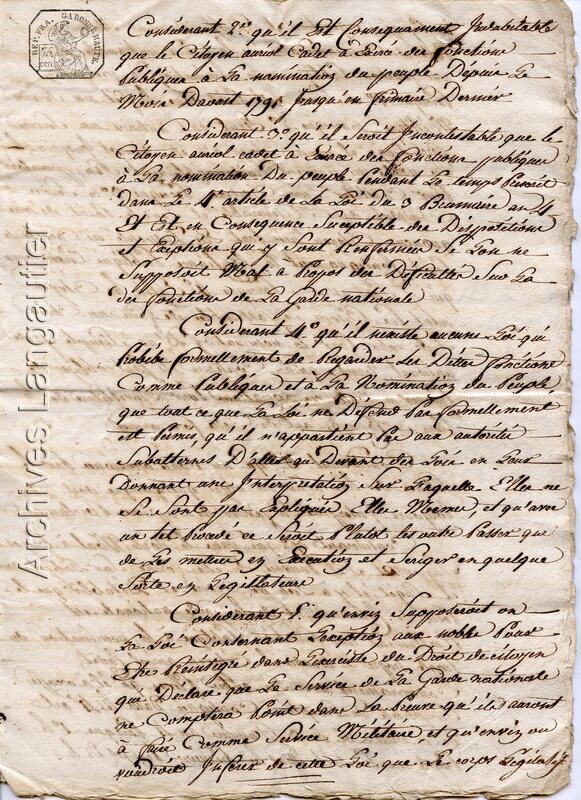 REP. FRA. GARONNE HAUTE.
75
cen
Considerant 2.º qu'il Est Consequament Indubitable
que le Citoyen auriol Cadet à Exercé des fonctions
publiques à La nomination du peuple Depuis Le
Mois Davout 1791 Jusqu'en frimaire Dernier
Considerant 3.º qu'il Seroit Incontestable que le
Citoyen auriol cadet à Exercé des fonctions publiques
à La nomination Du peuple Pendant Le temps
dans Le 4.e article de La Loi du 3 Brumaire an 4
Et Est en Consequence Suceptible des Dispositions
et Exceptions qui y Sont Renfermées Se Lon ne
Suppozoit Mal à Propos des Difficultes Sur La
des fonctions de La Garde nationale
Considerant 4.º qu'il nexiste aucune Loi qui
Prohibe formellement de Regarder Les Dites fonctions
Comme Publiques et à La Nomination du Peuple,
que tout ce que La Loi ne Défend Pas formellement
est Permis, qu'il n'appartient Pas aux autorités
Subalternes D'aller au Devant des Loix en Leur
Donnant une Interprétation Sur Laquelle Elles ne
Se Sont pas Expliquées Elles Meme, et qu'avec
un tel Procédé ce Seroit Plutot les outre Passer que
de Les mettre en Execution et Seriger en quelque
Sorte en Legislateur
Considerant 5.º qu'envain Supposeroit on
La Loi Consernant Lexception aux nobles Pour
Etre Reintegré dans Lexercisse du Droit de citoyen
qui Declare que Le Service de La Garde nationale
ne Comptera Point dans La Preuve qu'ils auront
à faire Comme Service Militaire, et qu'envain on
voudroit Inferer de cette Loi que Le corps Legislatif
Archives Langautier